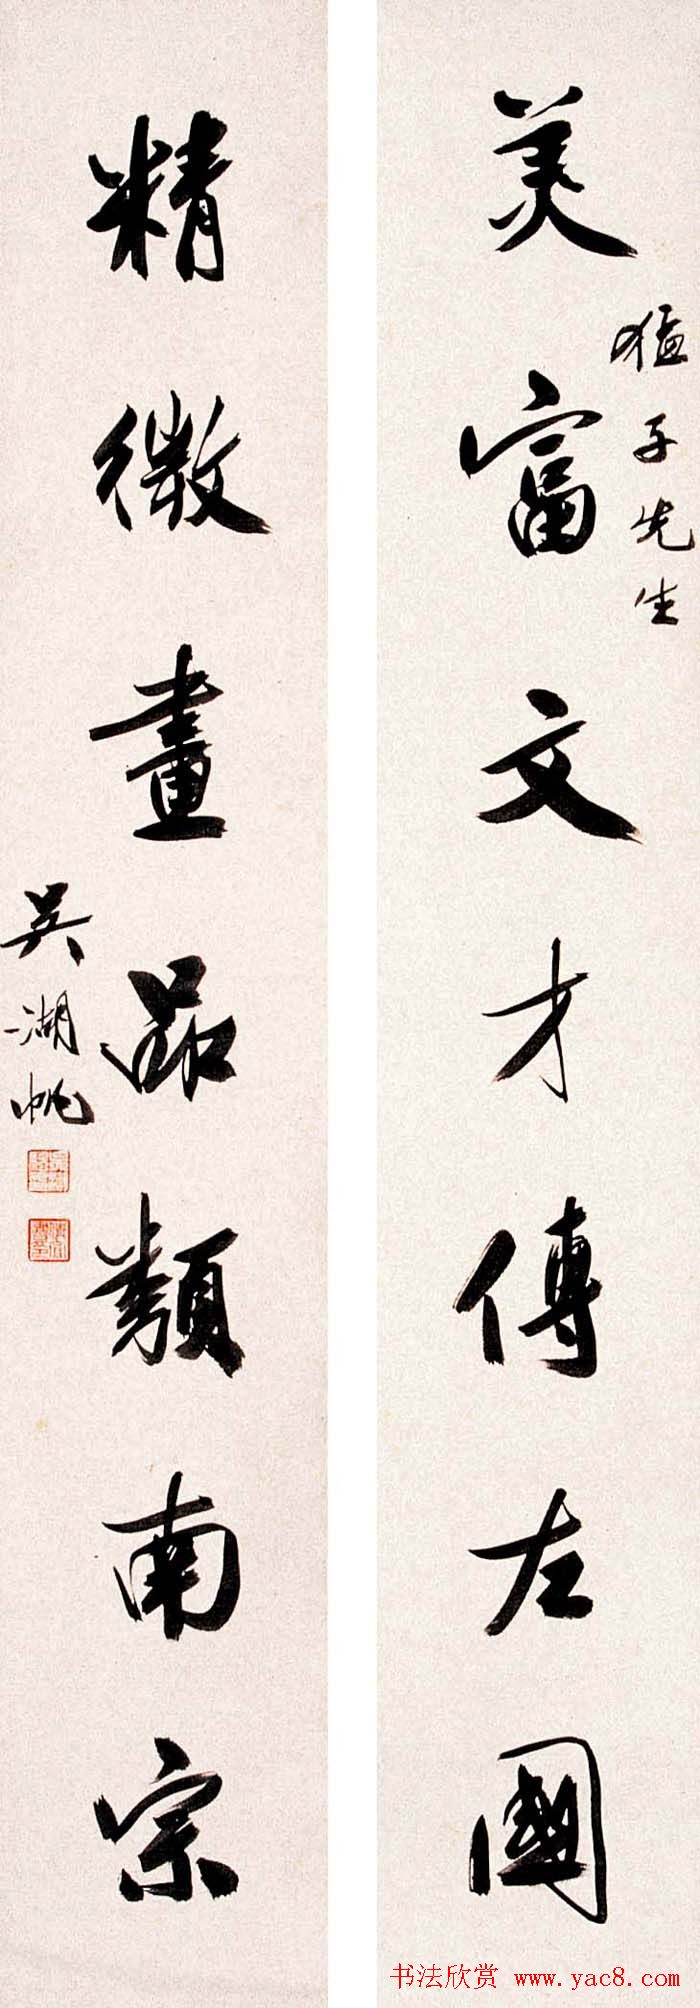 美富文才傳左國
猛子先生
精微畫品類南宗
吳湖帆
书法欣赏 www.yac8.com